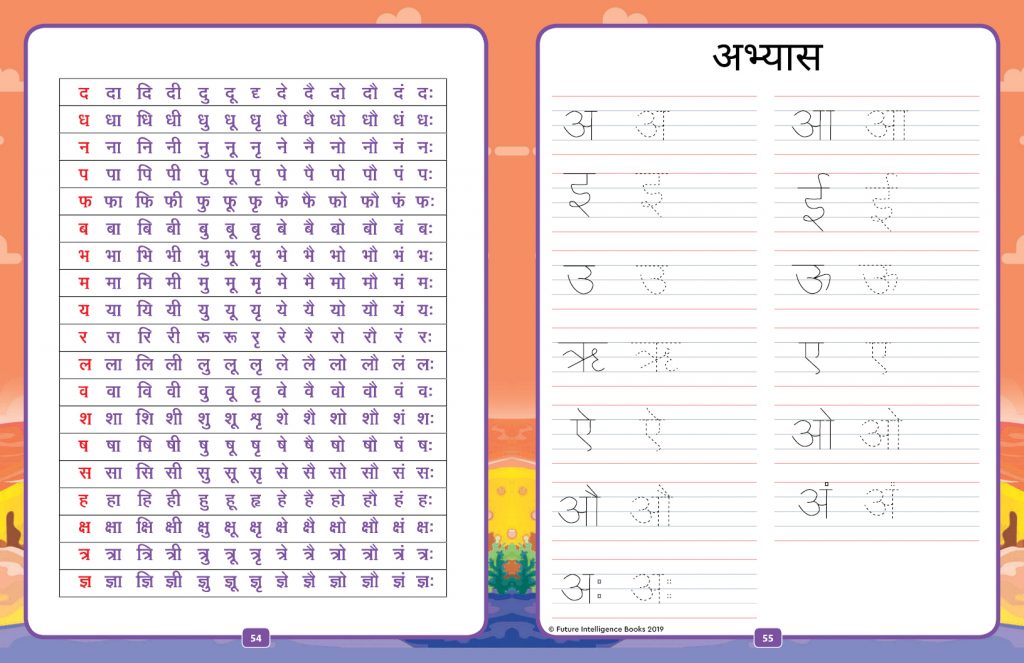 द दा दि दी दु दू दृ दे दै दो दौ दं दः
ध धा धि धी धु धू धृ धे धै धो धौ धं धः
न ना नि नी नु नू नृ ने नै नो नौ नं नः
प पा पि पी पु पू पृ पे पै पो पौ पं पः
फ फा फि फी फु फू फृ फे फै फो फौ फं फः
ब बा बि बी बु बू बृ बे बै बो बौ बं बः
भ भा भि भी भु भू भृ भे भै भो भौ भं भः
म मा मि मी मु मू मृ मे मै मो मौ मं मः
य या यि यी यु यू यृ ये यै यो यौ यं यः
र रा रि री रु रू रृ रे रै रो रौ रं रः
ल ला लि ली लु लू लृ ले लै लो लौ लं लः
व वा वि वी वु वू वृ वे वै वो वौ वं वः
श शा शि शी शु शू शृ शे शै शो शौ शं शः
ष षा षि षी षु षू षृ षे षै षो षौ षं षः
स सा सि सी सु सू सृ से सै सो सौ सं सः
ह हा हि ही हु हू हृ हे है हो हौ हं हः
क्ष क्षा क्षि क्षी क्षु क्षू क्षृ क्षे क्षै क्षो क्षौ क्षं क्षः
त्र त्रा त्रि त्री त्रु त्रू त्रृ त्रे त्रै त्रो त्रौ त्रं त्रः
ज्ञ ज्ञा ज्ञि ज्ञी ज्ञु ज्ञू ज्ञृ ज्ञे ज्ञै ज्ञो ज्ञौ ज्ञं ज्ञः
54
अभ्यास
अ अ आ आ
इ इ ई ई
उ उ ऊ ऊ
ऋ ऋ ए ए
ऐ ऐ ओ ओ
औ औ अं अं
अः अः
© Future Intelligence Books 2019
55